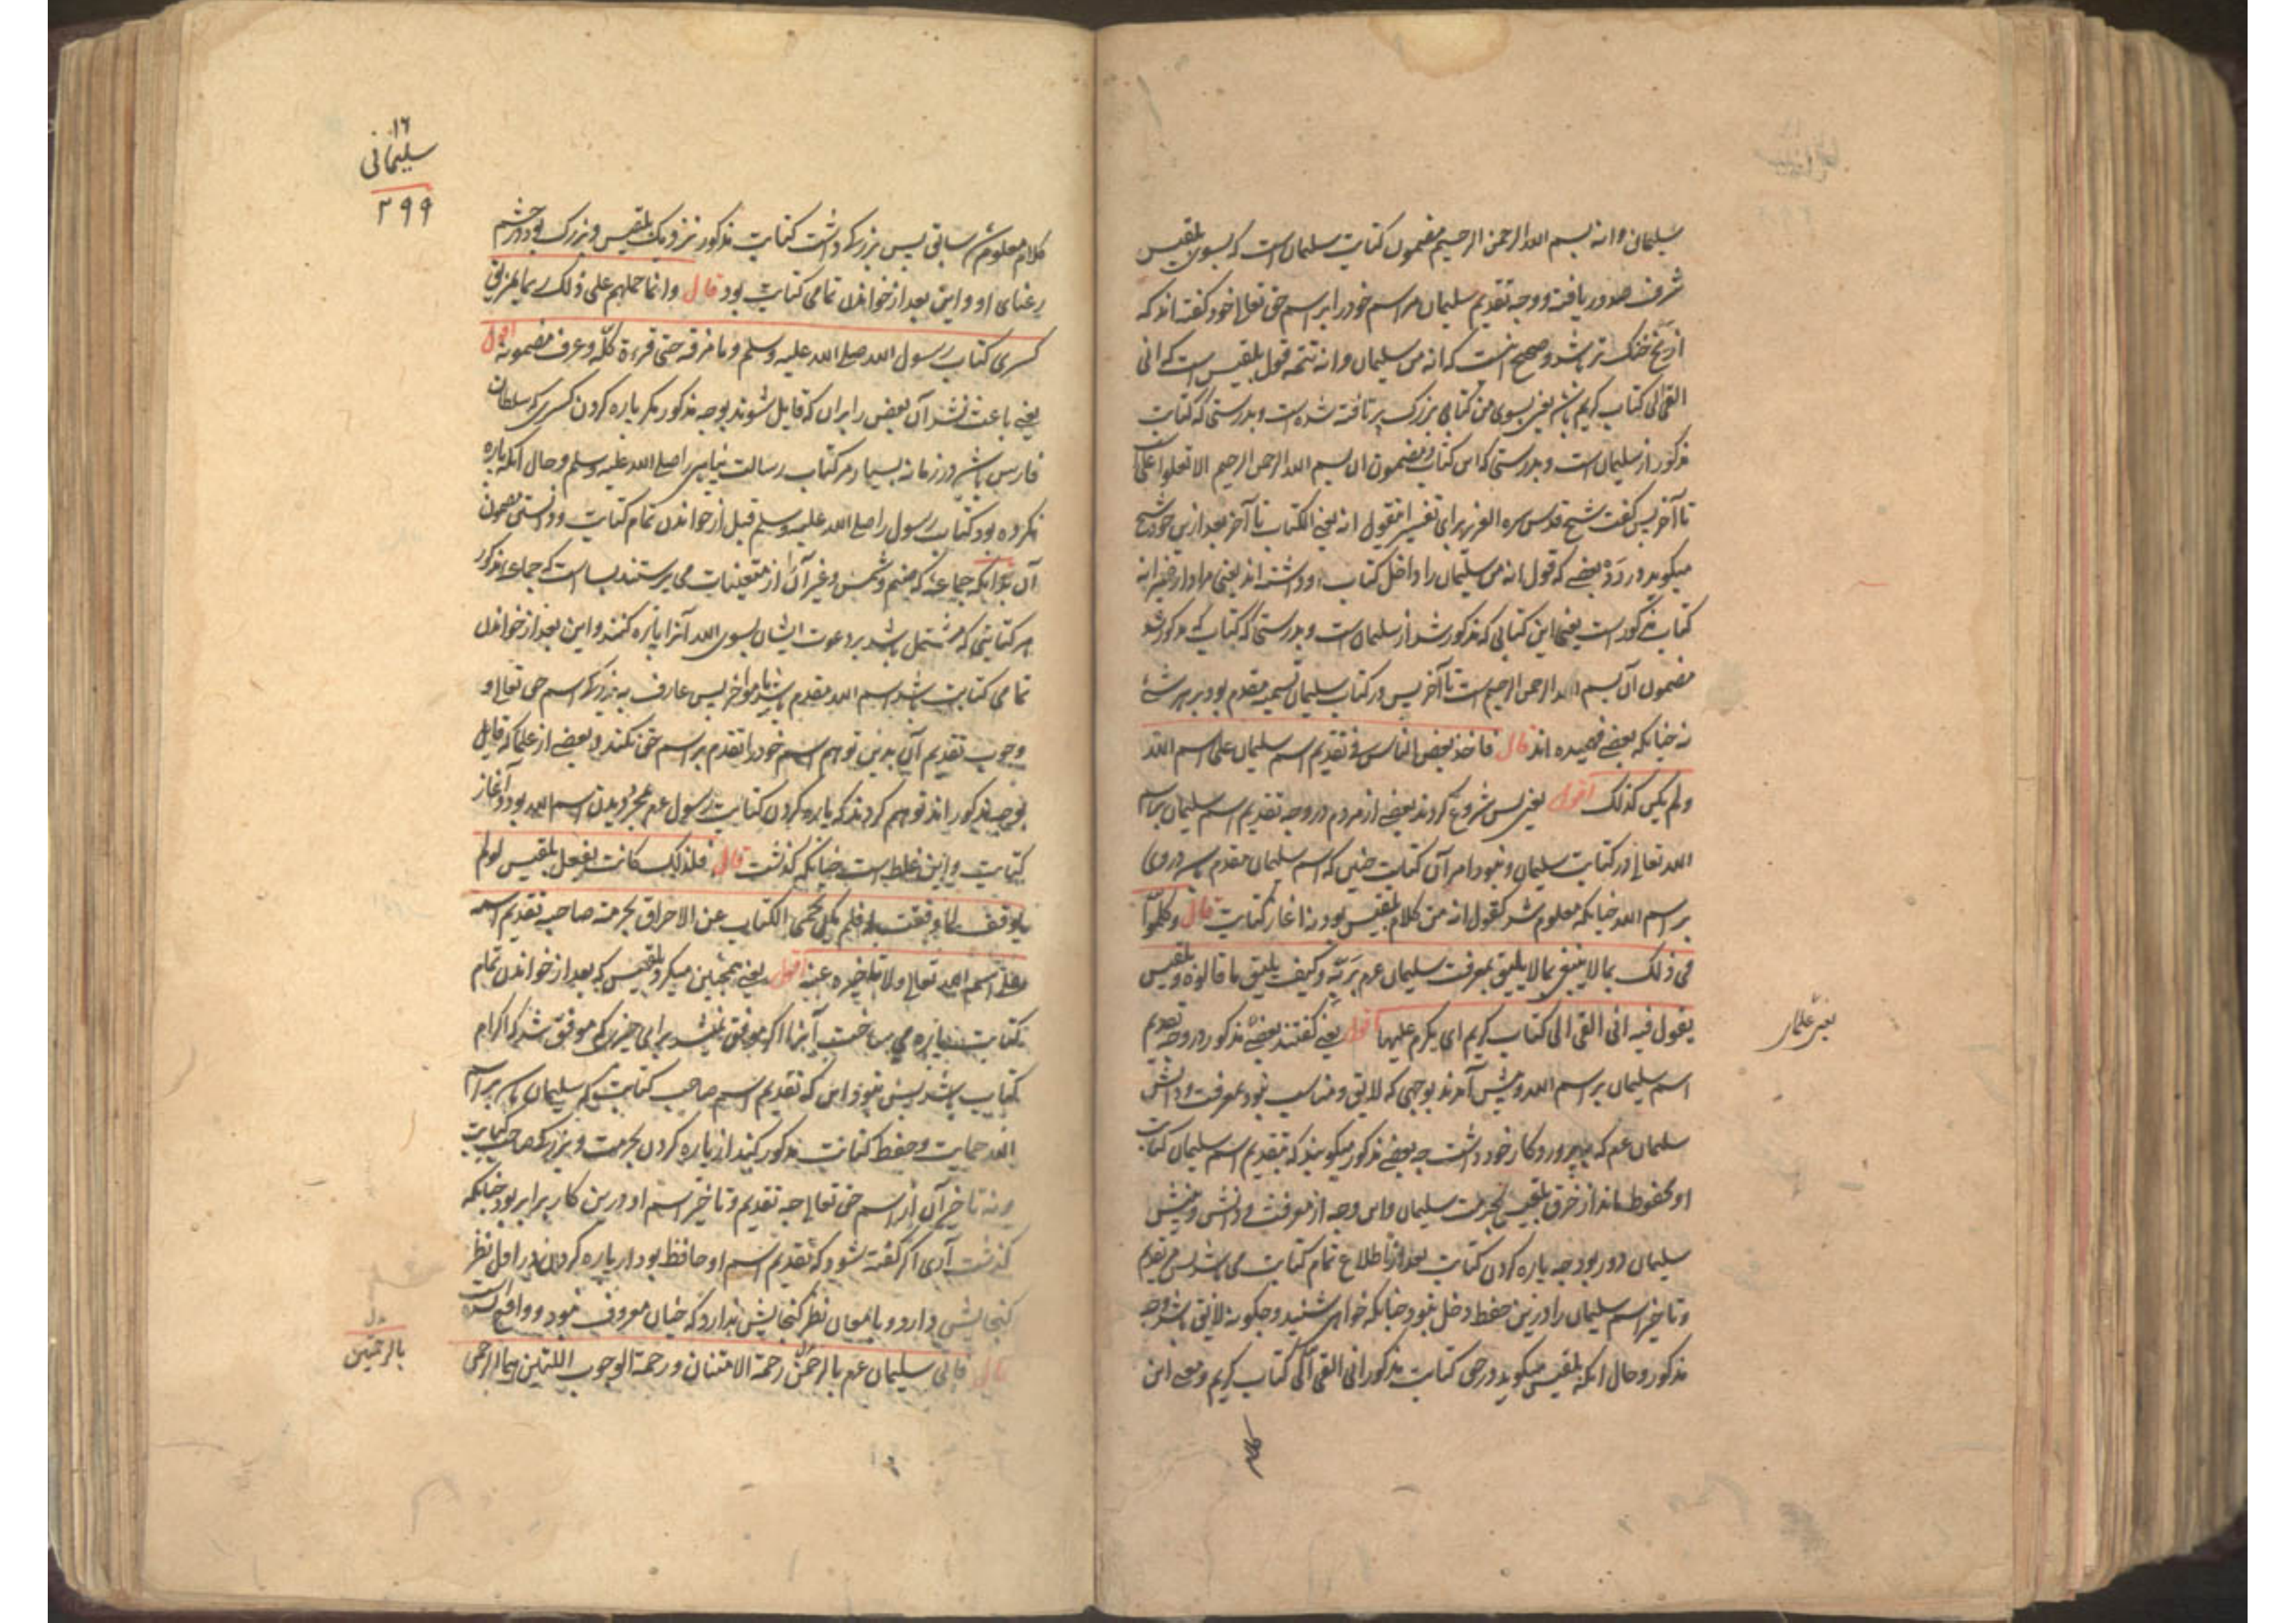 سلیمان وانه بسم الله الرحمن الرحیم مضمون کتابت سلیمان است که بسوی بلقیس
شرف صدور یافته ووجه تقدیم سلیمان مر اسم خود را بر اسم حق تعالی خود گفته اند که
از یخ خنک تر باشد وصحیح آنست که انه من سلیمان وانه تتمه قول بلقیس است که انی
القی الی کتاب کریم باشد یعنی بسوی من کتابی بزرگ بر تافته شده است وبدرستی که کتابت
مذکور از سلیمان است وبدرستی که این کتاب مضمون آن بسم الله الرحمن الرحیم الا تعلوا علی
تا آخر پس گفت شیخ قدس سره العزیز برای تفسیر فقول انه یعنی الکتاب تا آخر بعد ازین خود شیخ
میگوید در رد بعضی که قول انه من سلیمان را داخل کتاب او داشته اند یعنی مراد از ضمیر انه
کتاب مذکور است یعنی این کتابی که مذکور شد از سلیمان است وبدرستی که کتاب که مذکور شد
مضمون آن بسم الله الرحمن الرحیم است تا آخر پس در کتاب سلیمان تسمیه مقدم بود بر هر شئ
نه چنانکه بعضی فهمیده اند قال فاخذ بعض الناس فی تقدیم اسم سلیمان علی اسم الله
ولم یکن کذلک اقول یعنی پس شروع کردند بعضی از مردم در وجه تقدیم اسم سلیمان بر اسم
الله تعالی در کتابت سلیمان ونبود امر آن کتابت چنین که اسم سلیمان مقدم باشد در وی
بر اسم الله چنانکه معلوم شد که قول انه من کلام بلقیس بود نه آغاز کتابت قال وتکلموا
فی ذلک بما لا ینبغی مما لا یلیق بمعرفت سلیمان عم بربه وکیف یلیق ما قالوه وبلقیس
یقول فیه انی القی الی کتاب کریم ای یکرم علیها اقول یعنی گفتند بعضی مذکور در وجه تقدیم
اسم سلیمان بر اسم الله وپیش آمدند بوجهی که لایق ومناسب نبود بمعرفت ودانش
سلیمان عم که بپروردگار خود داشت چه بعضی مذکور میگویند که تقدیم اسم سلیمان کتابت
او محفوظ ماند از خرق بلقیس بحرمت سلیمان واین وجه از معرفت ودانش وبینش
سلیمان دور بود چه پاره کردن کتابت بعد از اطلاع تمام کتابت می باشد پس تقدیم
وتاخیر اسم سلیمان را درین حفظ دخل نبود چنانکه خواهی شنید وچگونه لایق باشد وجه
مذکور وحال آنکه بلقیس میگوید در حق کتابت مذکور انی القی الی کتاب کریم ومعنی این
کلام
یعنی علماء
۱۶
سلیمانی
۲۹۹
کلام معلوم شد سابق پس بزرگ داشت کتابت مذکور نزدیک بلقیس وبزرگ بود در چشم
کسری کتاب رسول الله صلی الله علیه وسلم وما مزقه حتی قرءه کله وعرف مضمونه اقول
یعنی باعث نشد آن بعض را بر آن که قایل شوند بوجه مذکور مگر پاره کردن کسری که سلطان
فارس باشد در زمانه مر کتاب رسالت پناهی را صلی الله علیه وسلم وحال آنکه پاره
نکرده بود کتاب رسول را صلی الله علیه وسلم قبل از خواندن تمام کتابت ودانستی مضمون
آن جماعه که صنم وشمس وغیر آن را از متعینات می پرستند بسا است که جماعه مذکور
هر کتابتی که مشتمل باشد بر دعوت ایشان بسوی الله آنرا پاره کنند واین بعد از خواندن
تمامی کتابت باشد اسم الله مقدم باشد یا مؤخر پس عارف به بزرگی اسم حق تعالی و
وجوب تقدیم آن بدین توهم اسم خود را تقدم بر اسم حق نکند وبعضی از علما که قایل
بوجه مذکور اند توهم کردند که پاره کردن کتابت رسول عم بمجرد دیدن اسم الله بود در آغاز
کتابت واین غلط است چنانکه گذشت قال فلذلک کانت تفعل بلقیس لو لم
یوفقه لما وفقت له فلم یکن یحمی الکتاب عن الاحراق بحرمته صاحبه تقدیم اسمه
علی اسم الله تعالی ولا تاخیره عنه اقول یعنی همچنین میکرد بلقیس که بعد از خواندن تمام
کتابت پاره می ساخت آنرا اگر موفق نمیشد برای چیزی که موفق شد که اکرام
کتاب باشد پس نبود این که تقدیم اسم صاحب کتابت که سلیمان باشد بر اسم
الله حمایت وحفظ کتابت مذکور کند از پاره کردن بحرمت وبزرگی صاحب کتابت
ونه تاخیر آن از اسم حق تعالی چه تقدیم وتاخیر اسم او درین کار برابر بود چنانکه
گذشت آری اگر گفته شود که تقدیم اسم او حافظ بود از پاره کردن در اول نظر
گنجایش دارد وبامعان نظر گنجایش ندارد که چنان معروف نبود وواقع نشده
قال فاتی سلیمان عم بالرحمتین رحمة الامتنان ورحمة الوجوب اللتین هما الرحمن
بالرحمتین